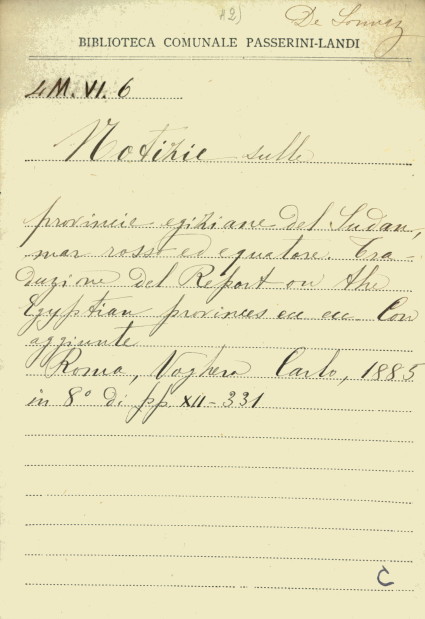 42)
De
BIBLIOTECA COMUNALE PASSERINI-LANDI
4M.VI.6
Notizie sulle
provincie egiziane del Sudan,
mar rosso ed equatore. Tra-
duzione del Report on the
Egyptian provinces ecc ecc Con
aggiunte
Roma, Voghera Carlo, 1885
in 8° di pp XII-331
C